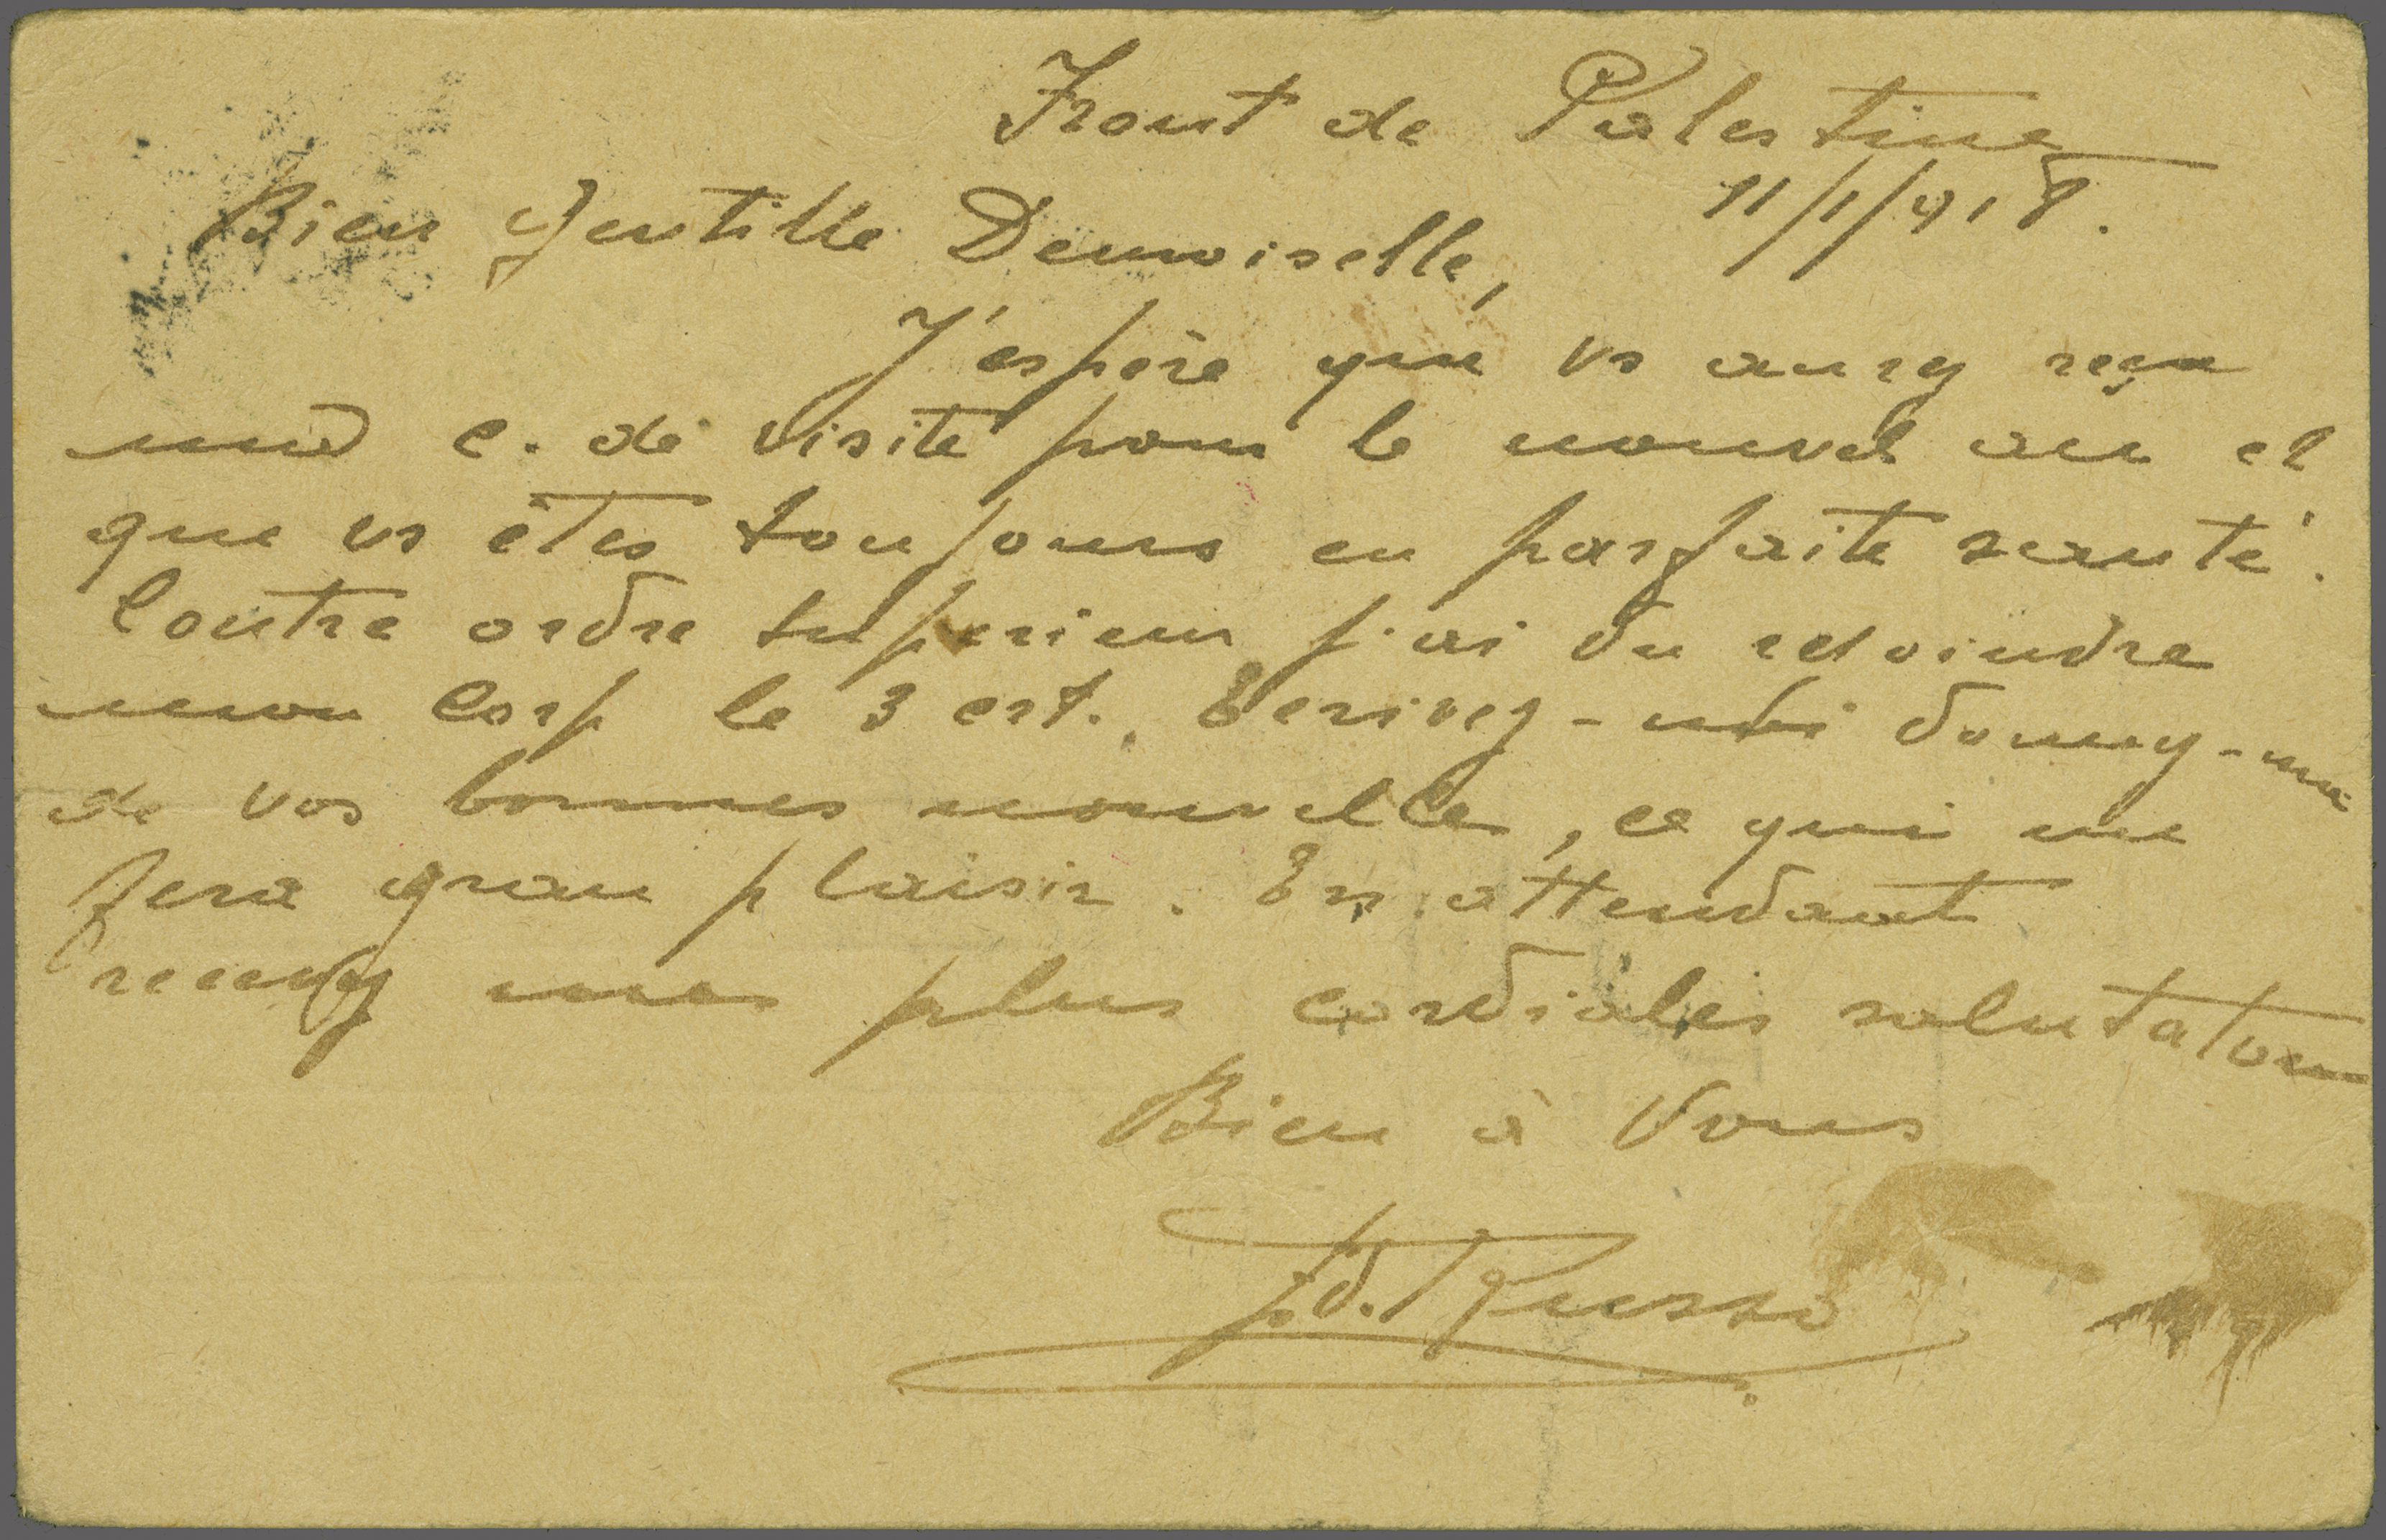 Front de Palestine
11/1/918.
Bien Gentille Demoiselle,
J'espère que vs aurez reçu
une c. de visite pour le nouvel an et
que vs êtes toujours en parfaite santé.
Contre ordre superieur j'ai du rejoindre
mon Corp le 3 crt. Ecrivez-moi donnez-moi
de vos bonnes nouvelles, ce qui me
fera gran plaisir. En attendant
recevez mes plus cordiales salutations
Bien à Vous
Russo